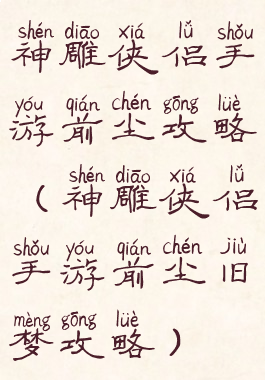 shén diāo xiá lǚ shǒu
神雕侠侣手
yóu qián chén gōng lüè
游前尘攻略
shén diāo xiá lǚ
(神雕侠侣
shǒu yóu qián chén jiù
手游前尘旧
mèng gōng lüè
梦攻略)